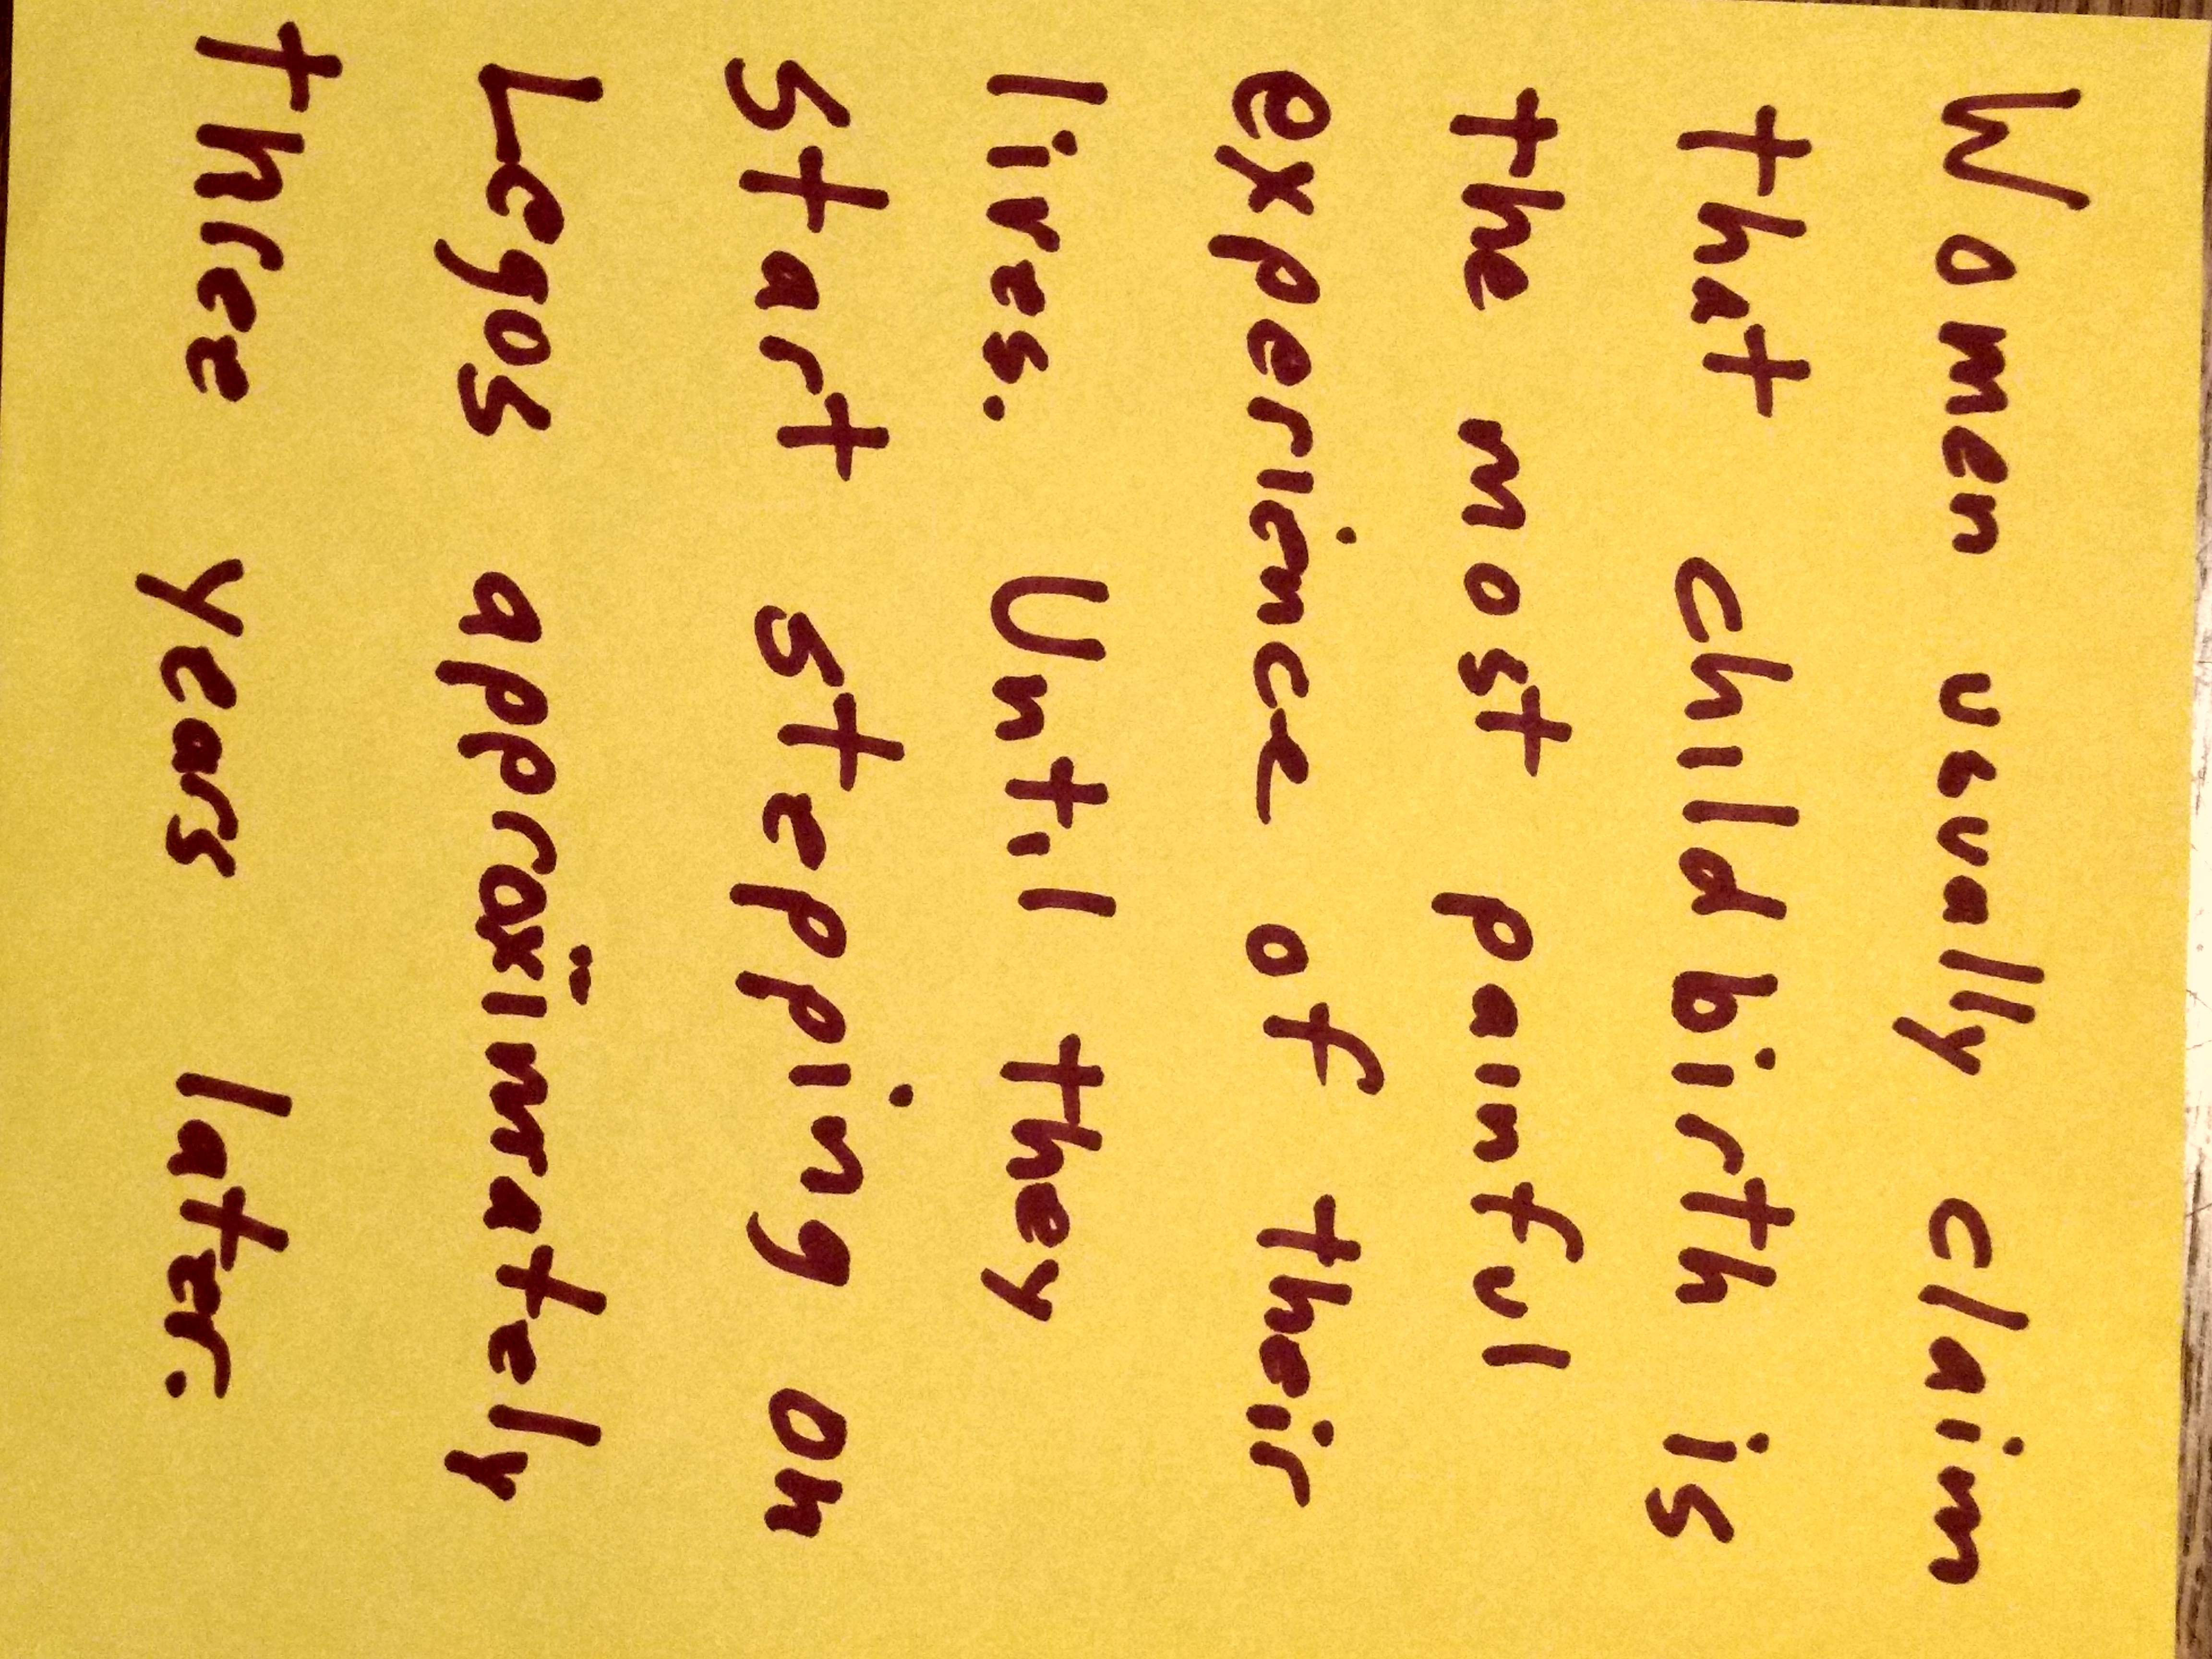 Women usually claim
that childbirth is
the most painful
experience of their
lives. Until they
start stepping on
Legos approximately
three years later.